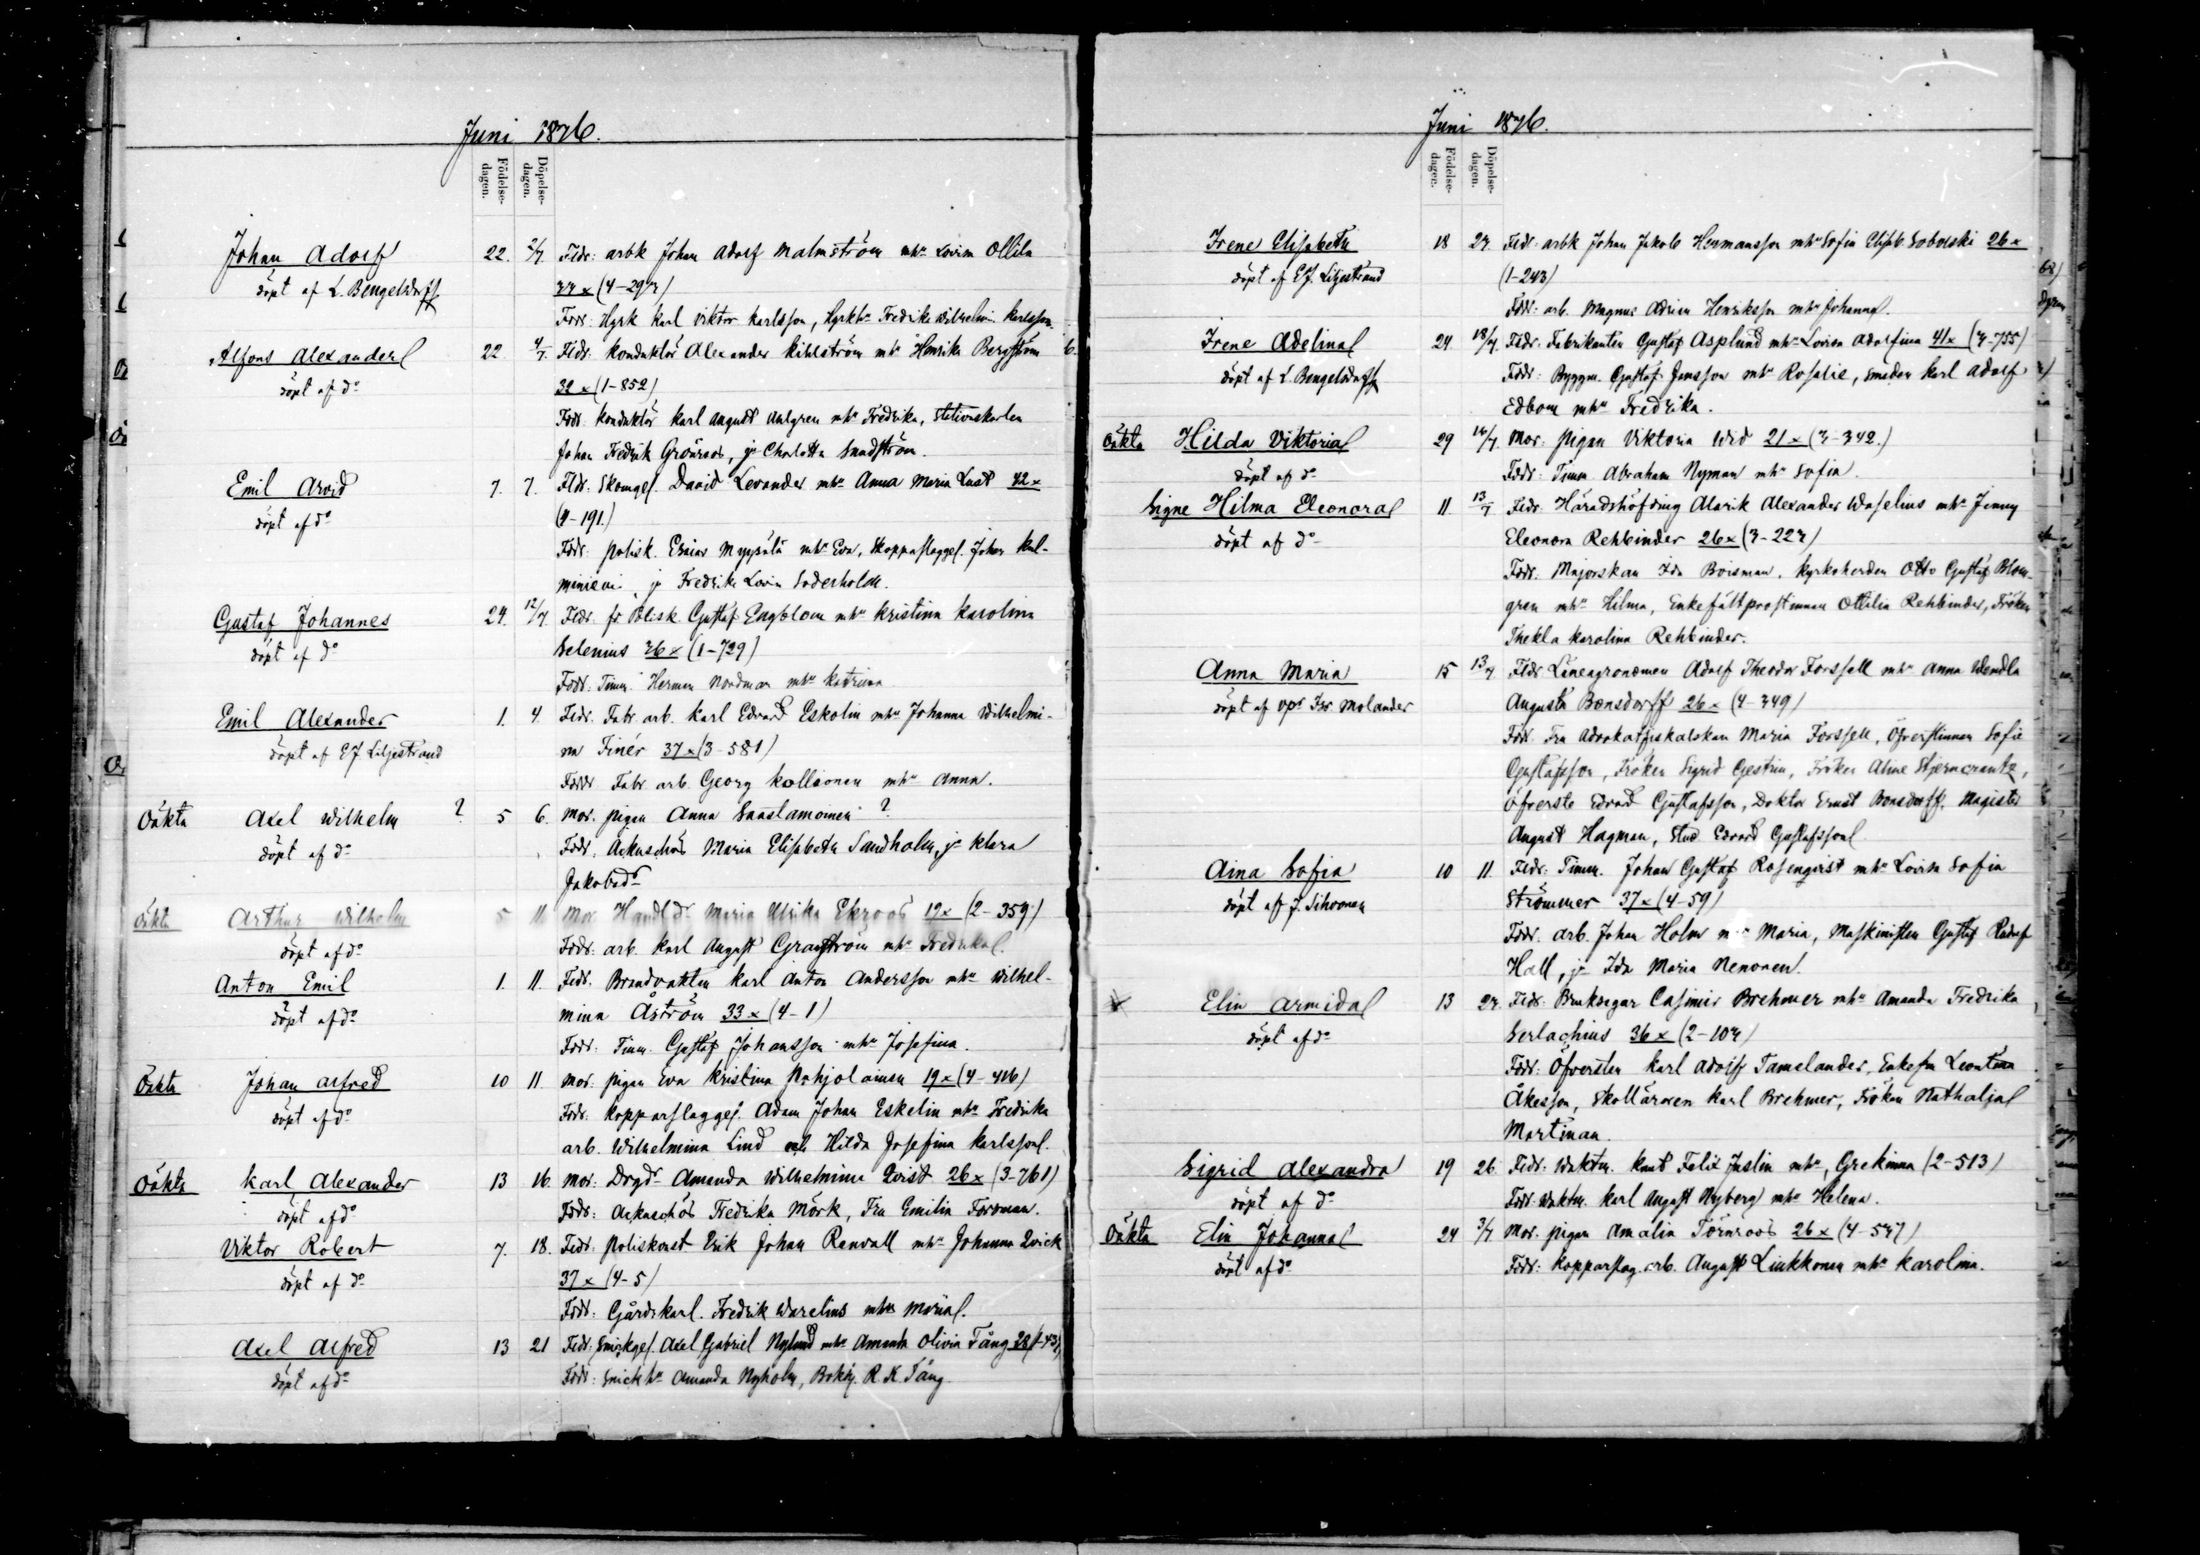 Juni 1876.
Födelse-dagen. Döpelse-dagen.
Johan Adolf 22. 2/7. Fldr: arbk Johan Adolf Malmström mhu Lovisa Ollila
döpt af L. Bengelsdorff 33 x (4-297)
Fddr: Hyrk Karl Viktor Karlsson, Hyrkhu Fredrika Wilhelmin. Karlsson.
Alfons Alexander 22 4/7. Fldr: Konduktör Alexander Kihlström mhu Henrika Bergström
döpt af do 32 x (1-852)
Fddr. Konduktör Karl August Ahlgren mhu Fredrika, Stationskarlen
Johan Fredrik Grönroos, jfr Charlotta Sundström.
Emil Arvid 7. 7. Fldr: Skomges. David Levander mhu Anna Maria Lust 42 x
döpt af do (4-191.)
Fddr: polisk. Esaias Myyrälä mhu Eva, Kopparslagges. Johan Kul-
miniemi, jfr Fredrika Lovisa Söderholm.
Gustaf Johannes 24. 12/7. Fldr. fr Polisk. Gustaf Engblom mhu Kristina Karolina
döpt af do Selenius 36 x (1-729)
Fddr: Timm. Herman Nordman mhu Katrina
Emil Alexander 1. 4. Fldr. Fabr. arb. Karl Edvard Eskolin mhu Johanna Wilhelmi-
döpt af EJ Liljestrand na Finér 37 x (3-581)
Fddr Fabr. arb. Georg Kollionen mhu Anna.
Oäkta Axel Wilhelm ? 5 6. Mor. pigan Anna Saastamoinen ?
döpt af do Fddr. Ackuschös Maria Elisabeth Sandholm, jfr Klara
Jakobsdr
Oäkta Arthur Wilhelm 5 11 Mor Handldr Maria Ulrika Ekroos 19x (2-359)
döpt af do Fddr: arb. Karl August Granström mhu Fredrika.
Anton Emil 1. 11. Fldr. Brandvakten Karl Anton Andersson mhu Wilhel-
döpt af do mina Åström 33 x (4-1)
Fddr: Timm. Gustaf Johansson mhu Josefina.
Oäkta Johan Alfred 10 11 Mor. pigan Eva Kristina Pohjolainen 19 x (4-416)
döpt af do Fddr. Kopparslagges. Adam Johan Eskelin mhu Fredrika
arb. Wilhelmina Lind och Hilda Josefina Karlsson.
Oäkta Karl Alexander 13 16. Mor: Drgdr Amanda Wilhelmina Qvist 26 x (3-761)
döpt af do Fddr: Ackuschös Fredrika Mörk, Fru Emilia Forsman.
Viktor Robert 7. 18. Fldr. poliskonst Erik Johan Renvall mhu Johanna Qvick
döpt af do 37 x (4-5)
Fddr: Gårdskarl. Fredrik Warelius mhu Maria.
Axel Alfred 13 21 Fldr: Snickges. Axel Gabriel Nylund mhu Amanda Olivia Tång 28
döpt af do Fddr: Snickhu Amanda Nyholm, Bokh. R. K. Tång
Juni 1876.
Födelse-dagen. Döpelse-dagen.
Irene Elisabeth 18 27. Fldr: arbk Johan Jakob Hermansson mhu Sofia Elisab. Sobolski 26 x
döpt af EJ. Liljestrand (1-243)
Fddr: arb. Magnus Adrian Henriksson mhu Johanna.
Irene Adelina 24 18/7. Fldr: Fabrikanten Gustaf Asplund mhu Lovisa Adolfina 41x (4-755)
döpt af L. Bengelsdorff Fddr: Byggm. Gustaf Jansson mhu Rosalie, smeden Karl Adolf
Edbom mhu Fredrika.
Oäkta Hilda Viktoria 29 16/7. Mor: pigan Viktoria Wid 21 x (3-342.)
döpt af do Fddr: Timm Abraham Nyman mhu Sofia.
Signe Hilma Eleonora 11. 13/7 Fldr: Häradshöfding Alarik Alexander Waselius mhu Jenny
döpt af do Eleonora Rehbinder 26 x (3-227)
Fddr: Majorskan Ida Boisman, kyrkoherden Otto Gustaf Blom-
gren mhu Hilma, Enkefältprostinnan Ottilia Rehbinder, Fröken
Thekla Karolina Rehbinder.
Anna Maria 15 13/7 Fldr. Läneagronomen Adolf Theodor Forssell mhu Anna Wendla
döpt af vps Isr Molander Augusta Bonsdorff 26 x (4-349)
Fddr Fru Advokatfiskalskan Maria Forssell, Öfverstinnan Sofie
Gustafsson, Fröken Sigrid Gestrin, Fröken Aline Stjerncrantz,
Öfverste Edvard Gustafsson, Doktor Ernst Bonsdorff, Magister
August Hagman, Stud. Edvard Gustafsson
Aina Sofia 10 11. Fldr: Timm. Johan Gustaf Rosenqvist mhu Lovisa Sofia
döpt af J. Sihvonen Strömmer 37 x (4-59)
Fddr. arb. Johan Holm mhu Maria, Maskinisten Gustaf Rudolf
Hall, jfr Ida Maria Nenonen.
Elin Armida 13 27. Fldr: Bruksegar Casimir Brehmer mhu Amanda Fredrika
döpt af do Serlachius 36 x (2-107)
Fddr: Öfversten Karl Adolf Tamelander, Enkefru Leontina
Åkesson, Skolläraren Karl Brehmer, Fröken Nathalia
Martinau.
Sigrid Alexandra 19 26. Fldr: Vaktm. Knut Felix Juslin mhu, Grekinna (2-513)
döpt af do Fddr. Vaktm. Karl August Nyberg mhu Helena.
Oäkta Elin Johanna 24 3/7 Mor. pigan Amalia Törnroos 26 x (4-547)
döpt af do Fddr: Kopparslag. arb. August Liukkonen mhu Karolina.